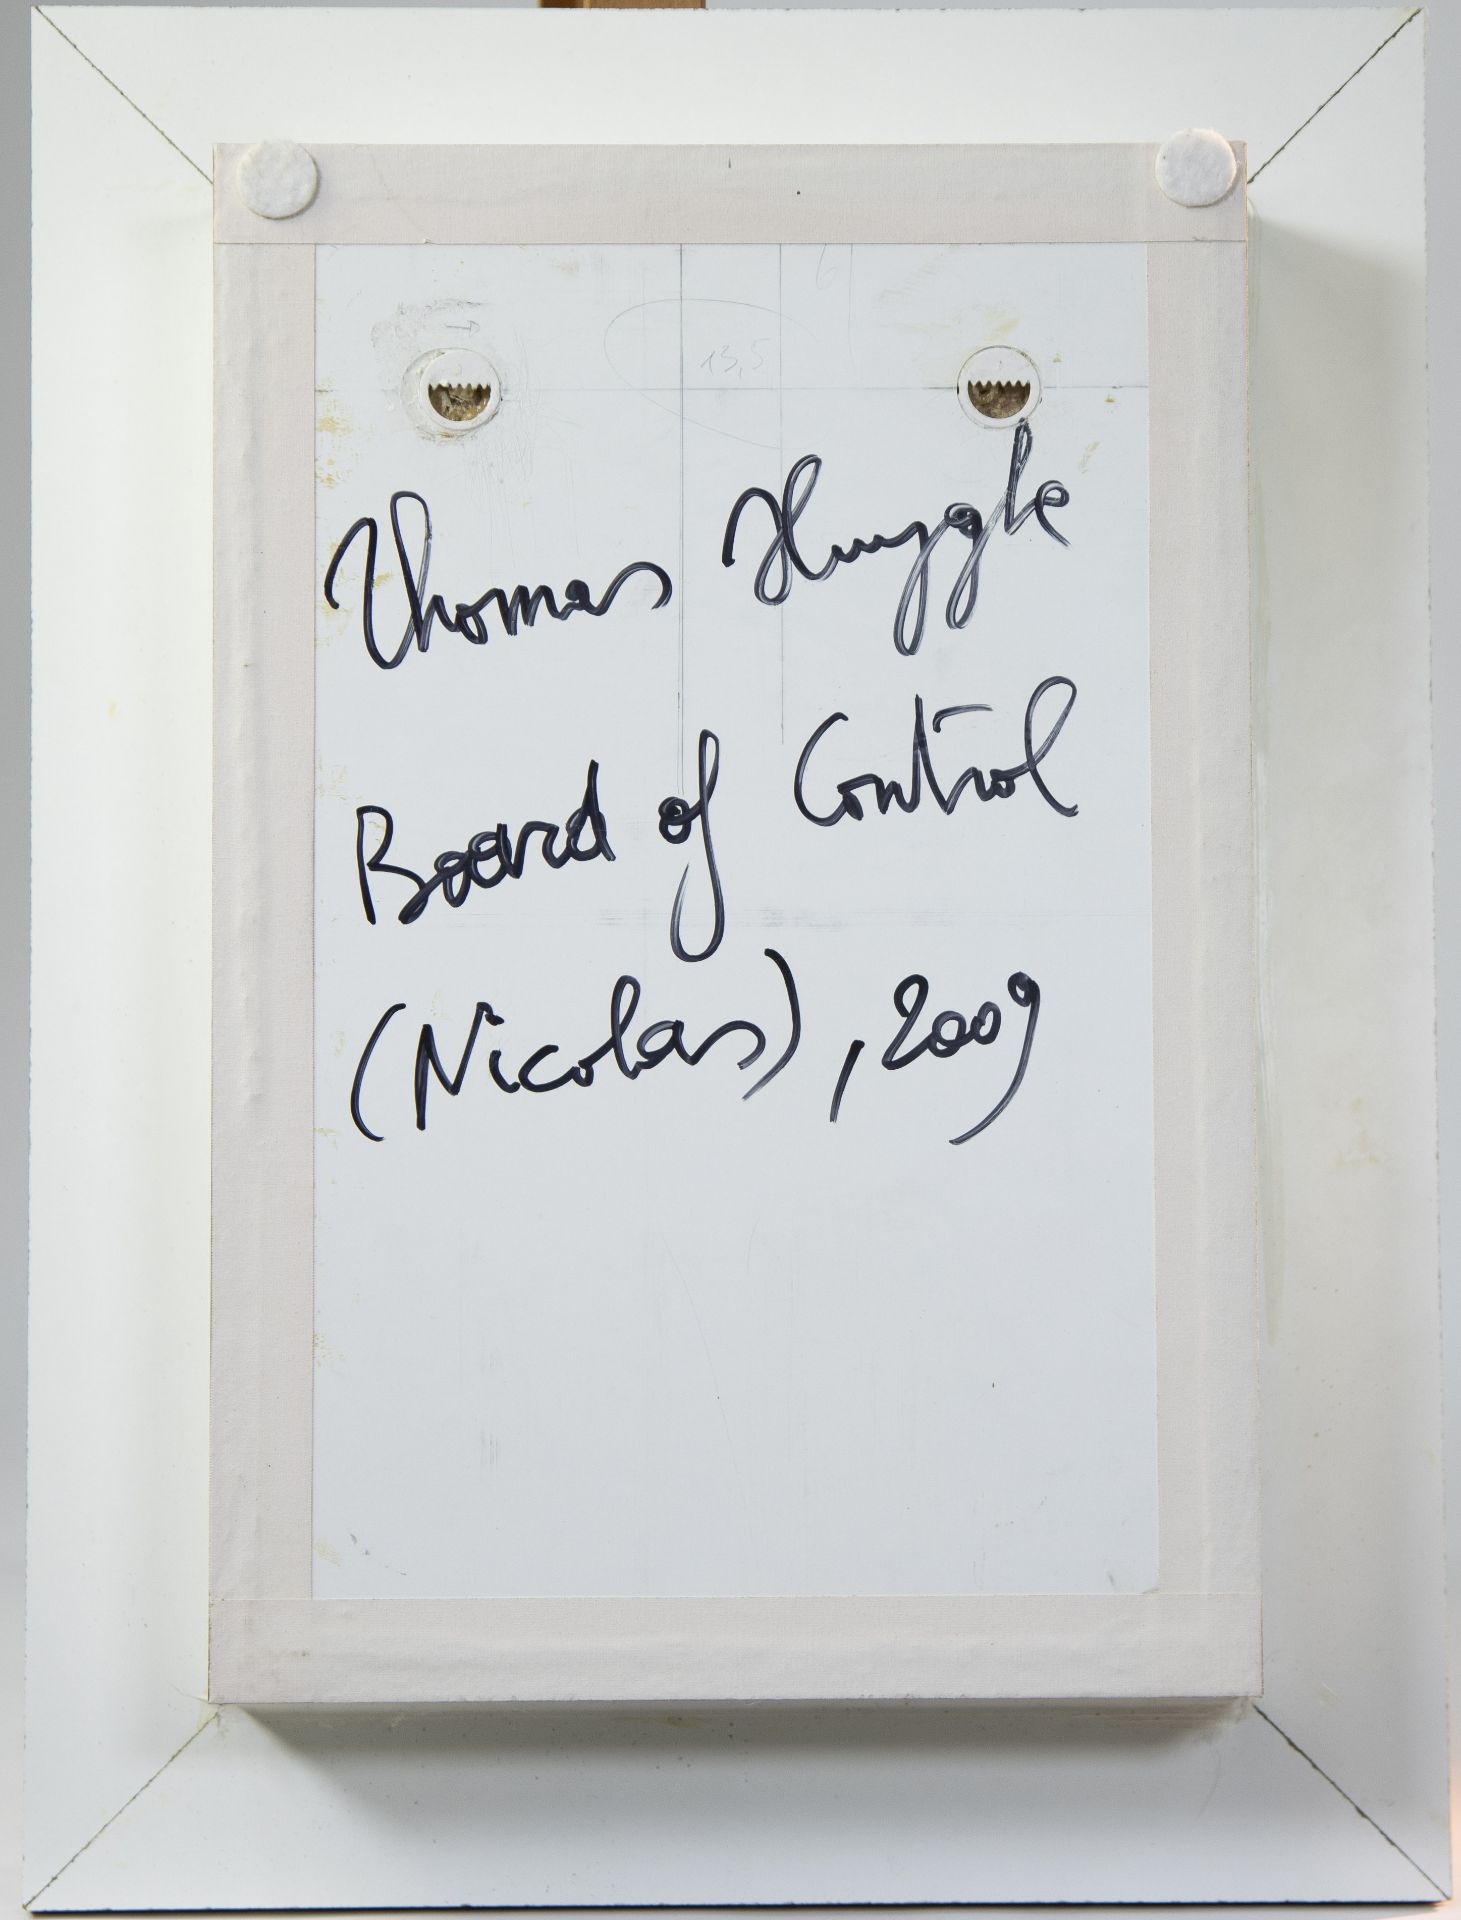 6
13,5
Thomas Huyghe
Board of Control
(Nicolas), 2009